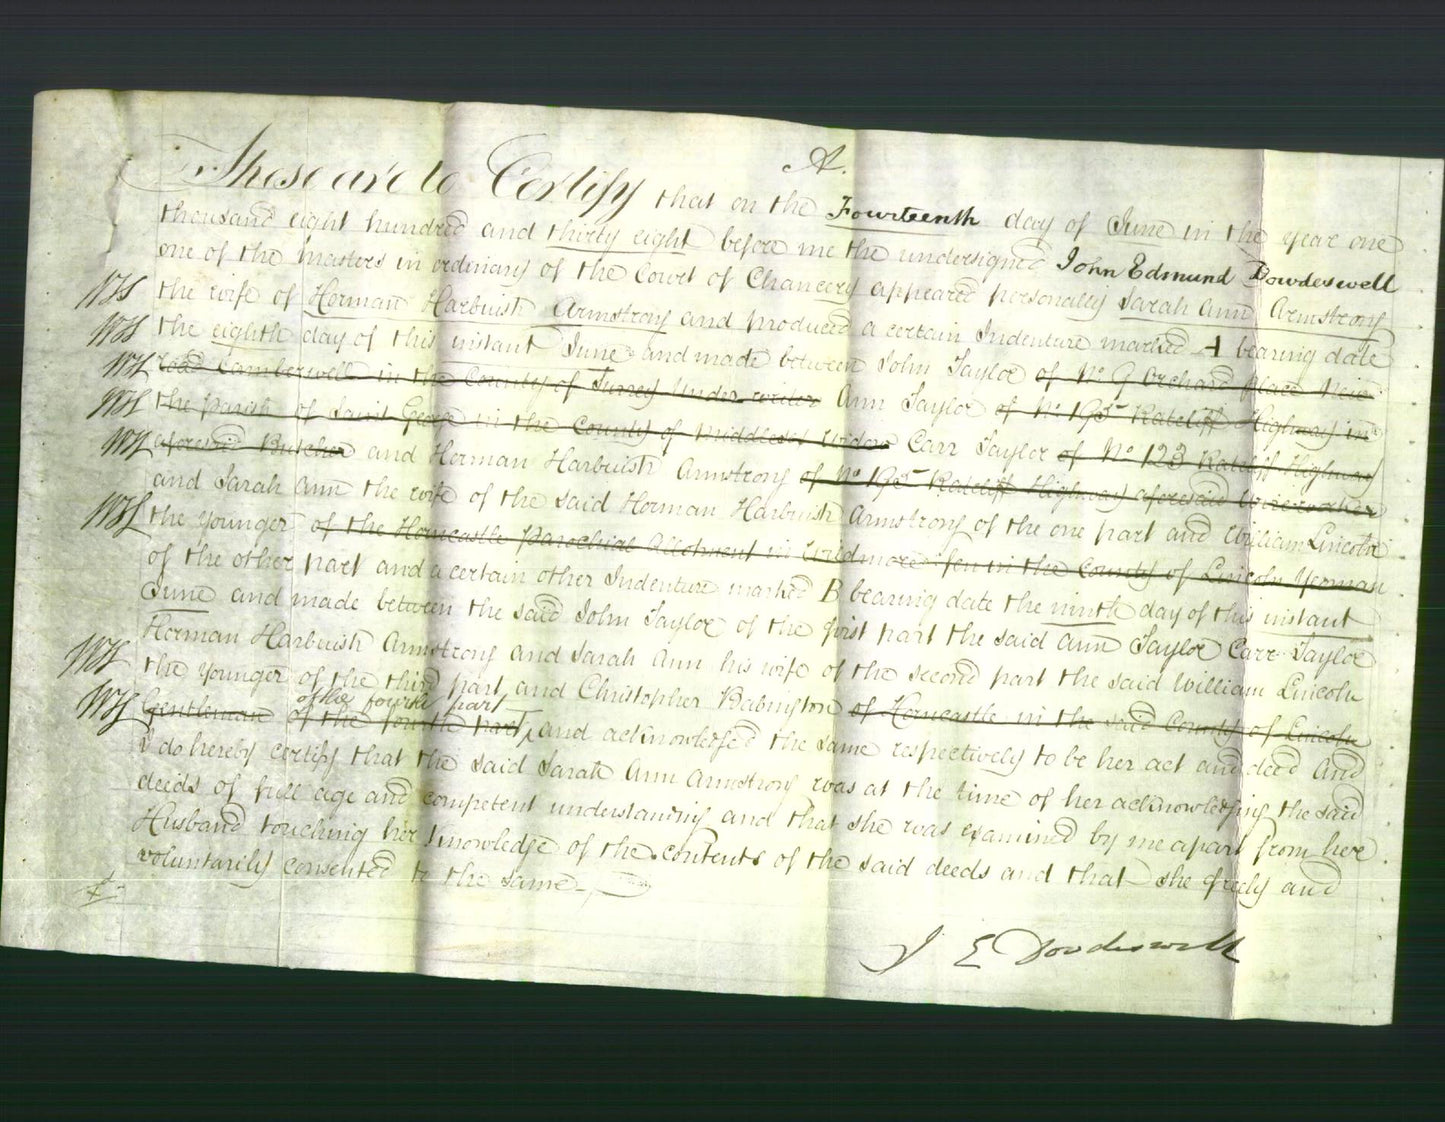 A.
These are to Certify that on the Fourteenth day of June in the year one
thousand eight hundred and thirty eight before me the undersigned John Edmund Dowdeswell
one of the Masters in ordinary of the Court of Chancery appeared personally Sarah Ann Armstrong
the wife of Herman Harbuish Armstrong and produced a certain Indenture marked A bearing date
the eighth day of this instant June and made between John Taylor of No. 9 Orchard place New
road Camberwell in the County of Surrey Underwriter Ann Taylor of No. 195 Ratcliff Highway in
the parish of Saint George in the County of Middlesex Widow Carr Taylor of No 123 Ratcliff Highway
aforesaid Butcher and Herman Harbuish Armstrong of No 195 Ratcliff Highway aforesaid
and Sarah Ann the wife of the said Herman Harbuish Armstrong of the one part and William Lincoln
the younger of the Horncastle Parochial Allotment in Wildmore fen in the County of Lincoln Yeoman
of the other part and a certain other Indenture marked B bearing date the ninth day of this instant
June and made between the said John Taylor of the first part the said Ann Taylor Carr Taylor
Herman Harbuish Armstrong and Sarah Ann his wife of the second part the said William Lincoln
the younger of the third part and Christopher Babington of Horncastle in the said County of Lincoln
of the fourth part
Gentleman of the fourth part and acknowledged the same respectively to be her act and deed And
I do hereby certify that the said Sarah Ann Armstrong was at the time of her acknowledging the said
deeds of full age and competent understanding and that she was examined by me apart from her
Husband touching her knowledge of the contents of the said deeds and that she freely and
voluntarily consented to the same
J E Dowdeswell